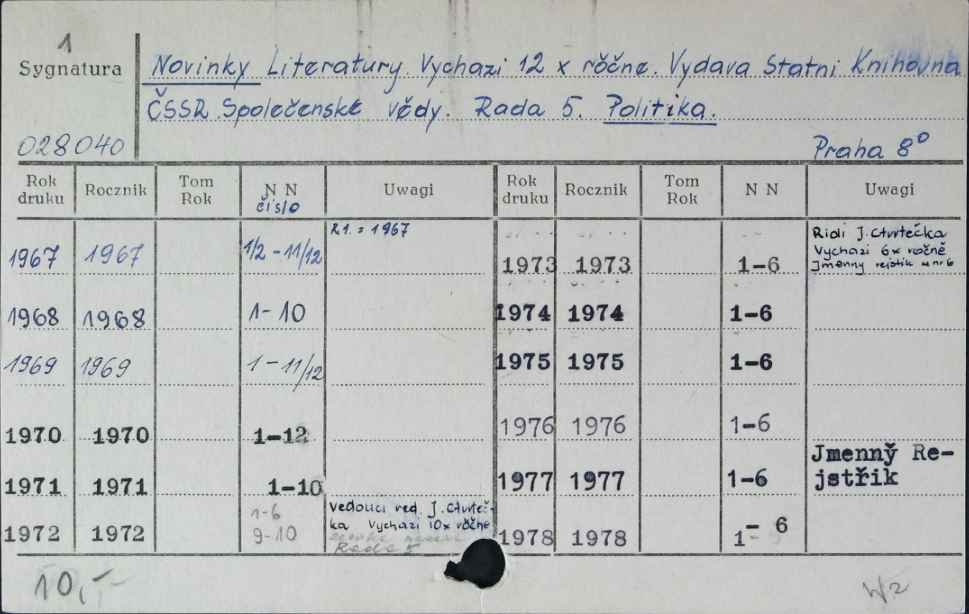 1
Sygnatura
Novinky Literatury. Vychazi 12 x ročne. Vydava Statni Knihovna
ČSSR. Společenské vědy. Rada 5. Politika.
028040
Praha 8°
Rok druku Rocznik Tom Rok N N čislo Uwagi Rok druku Rocznik Tom Rok N N Uwagi
1967 1967 1/2 - 11/12 R1. = 1967
1973 1973 1-6 Ridi J. Čtvrtečka
Vychazi 6x ročně
Jmenny rejstik w nr 6
1968 1968 1-10 1974 1974 1-6
1969 1969 1-11/12 1975 1975 1-6
1970 1970 1-12 1976 1976 1-6
1971 1971 1-10 1977 1977 1-6 Jmenny Re-
jstřik
1972 1972 1-6
9-10
Vedouci red. J. Čtvrteč-
ka Vychazi 10x ročne
Rada 5
1978 1978 1- 6
10,-
W2